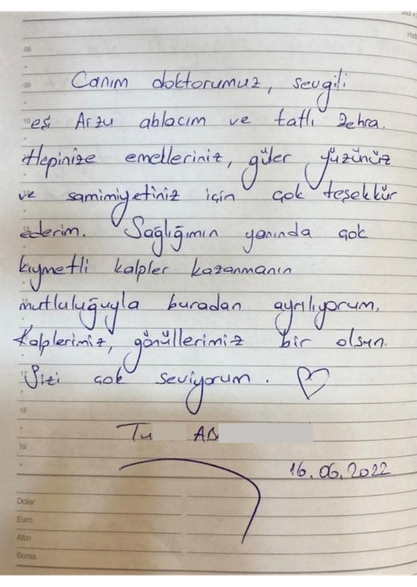 08
09
Canım doktorumuz, sevgili
10 eş Arzu ablacım ve tatlı Zehra.
Hepinize emelleriniz, güler yüzünüz
ve samimiyetiniz için çok teşekkür
ederim. Sağlığımın yanında çok
kıymetli kalpler kazanmanın
mutluluğuyla buradan ayrılıyorum.
Kalplerimiz, gönüllerimiz bir olsun.
Sizi çok seviyorum.
18
Tu AB
19
16.06.2022
Dolar
Euro
Altın
Borsa